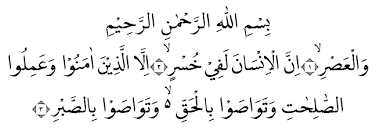 بِسْمِ اللهِ الرَّحْمٰنِ الرَّحِيْمِ
وَالْعَصْرِۙ ﴿١﴾ اِنَّ الْاِنْسَانَ لَفِيْ خُسْرٍۙ ﴿٢﴾ اِلَّا الَّذِيْنَ اٰمَنُوْا وَعَمِلُوا
الصّٰلِحٰتِ وَتَوَاصَوْا بِالْحَقِّ ەۙ وَتَوَاصَوْا بِالصَّبْرِ ﴿٣﴾